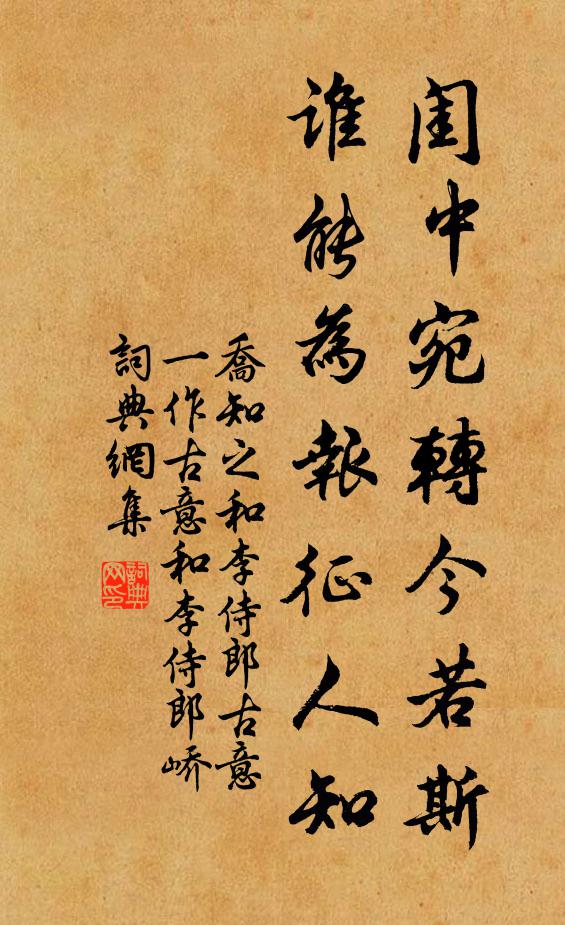 閨中宛轉今若斯
誰能為報征人知
喬知之和李侍郎古意
一作古意和李侍郎嶠
詞典網集
詞典網印